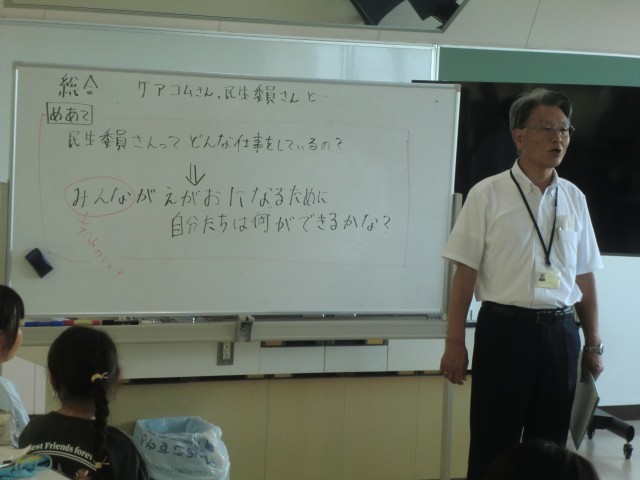 総合 ケアコムさん、民生委員さんと…
めあて
民生委員さんって どんな仕事をしているの?
⇓
みんながえがおになるために
自分たちは何ができるかな?
Best Friends forev